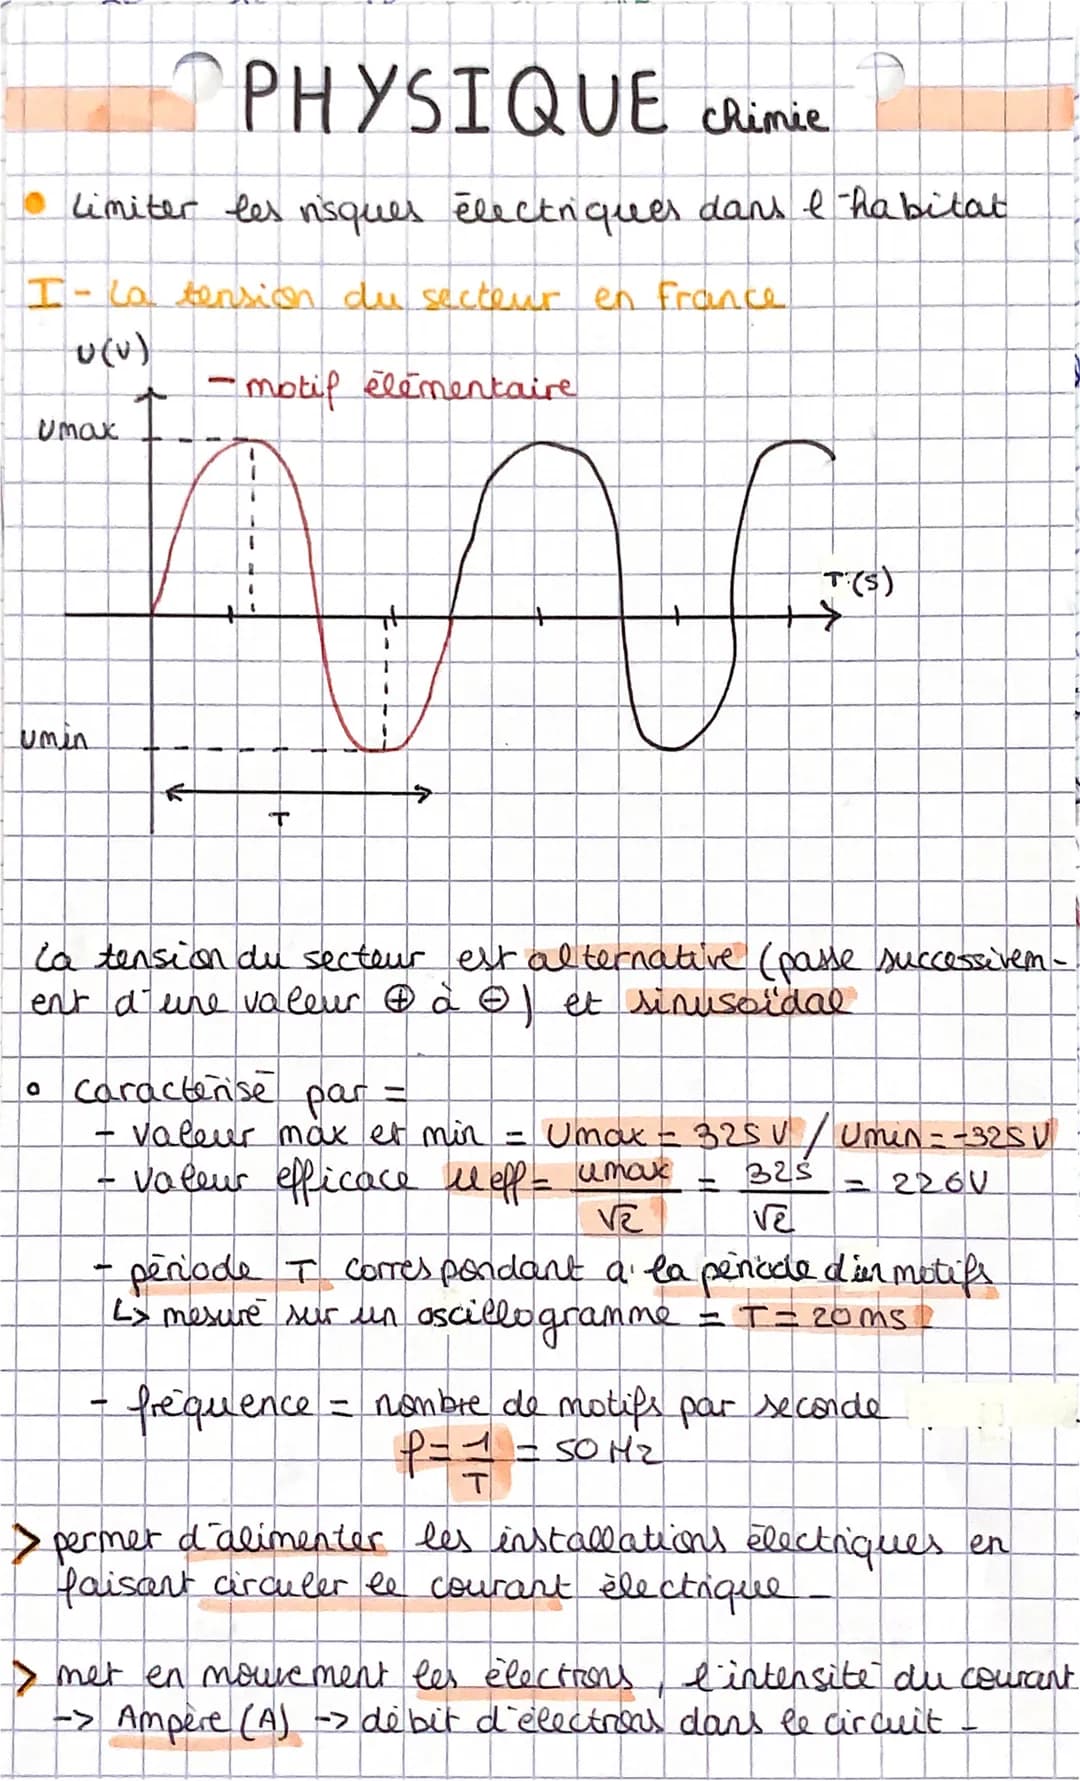 PHYSIQUE chimie
• Limiter les risques électriques dans l'habitat
I - La tension du secteur en France
U(V)
- motif élémentaire
Umax
T(s)
Umin
T
La tension du secteur est alternative (passe successivem-
ent d'une valeur ⊕ à ⊖) et sinusoïdal
• caractérisé par =
- valeur max et min = Umax = 325 V / Umin = -325 V
- valeur efficace Ueff = umax/√2 = 325/√2 = 226V
- période T correspondant a la période d'un motifs
↳ mesuré sur un oscillogramme = T = 20 ms
- fréquence = nombre de motifs par seconde
f = 1/T = 50 Hz
> permet d'alimenter les installations électriques en
faisant circuler le courant électrique -
> met en mouvement les électrons, l'intensité du courant
-> Ampère (A) -> débit d'électrons dans le circuit -